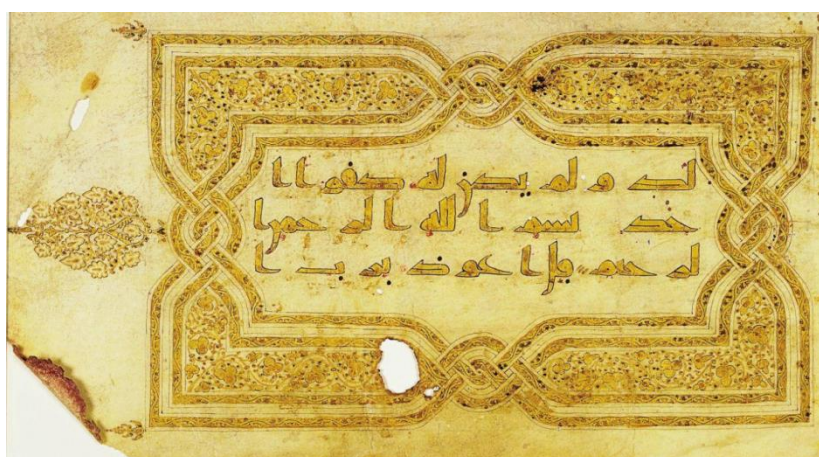 لد ولم يكن له كفوا ا
حد بسم الله الرحمن ا
لرحيم قل اعوذ برب ا